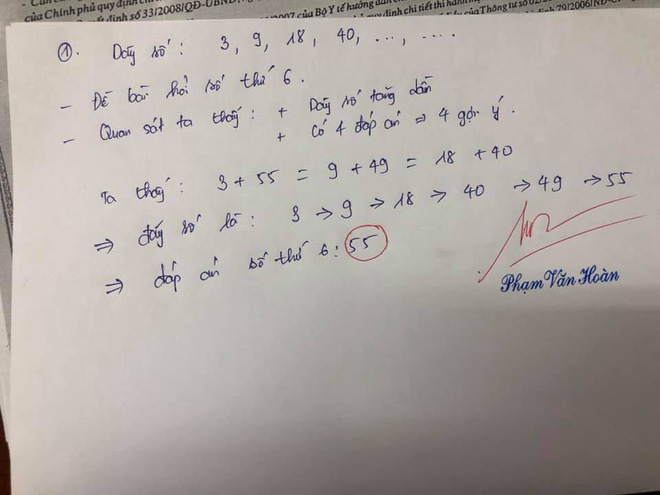 của Chính phủ quy định chi
số 33/2008/QĐ-UBND
2007 của Bộ Y tế hướng dẫn
quy định chi tiết thi hành
của Thông tư số 02/
79/2006/NĐ-CP
①. Dãy số : 3, 9, 18, 40, ..., ....
- Đề bài hỏi số thứ 6.
- Quan sát ta thấy : + Dãy số tăng dần
+ Có 4 đáp án ⇒ 4 gợi ý.
Ta thấy : 3 + 55 = 9 + 49 = 18 + 40
⇒ dãy số là : 3 → 9 → 18 → 40 → 49 → 55
⇒ đáp án số thứ 6 : 55
Phạm Văn Hoàn